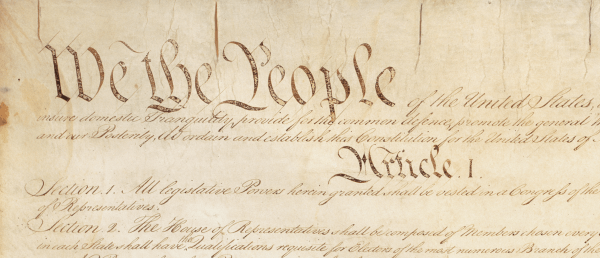 We the People of the United States,
insure domestic Tranquility, provide for the common defence, promote the general
and our Posterity, do ordain and establish this Constitution for the United States of
Article. I.
Section. 1. All legislative Powers herein granted shall be vested in a Congress of the
of Representatives.
Section. 2. The House of Representatives shall be composed of Members chosen every
in each State shall have the Qualifications requisite for Electors of the most numerous Branch of the